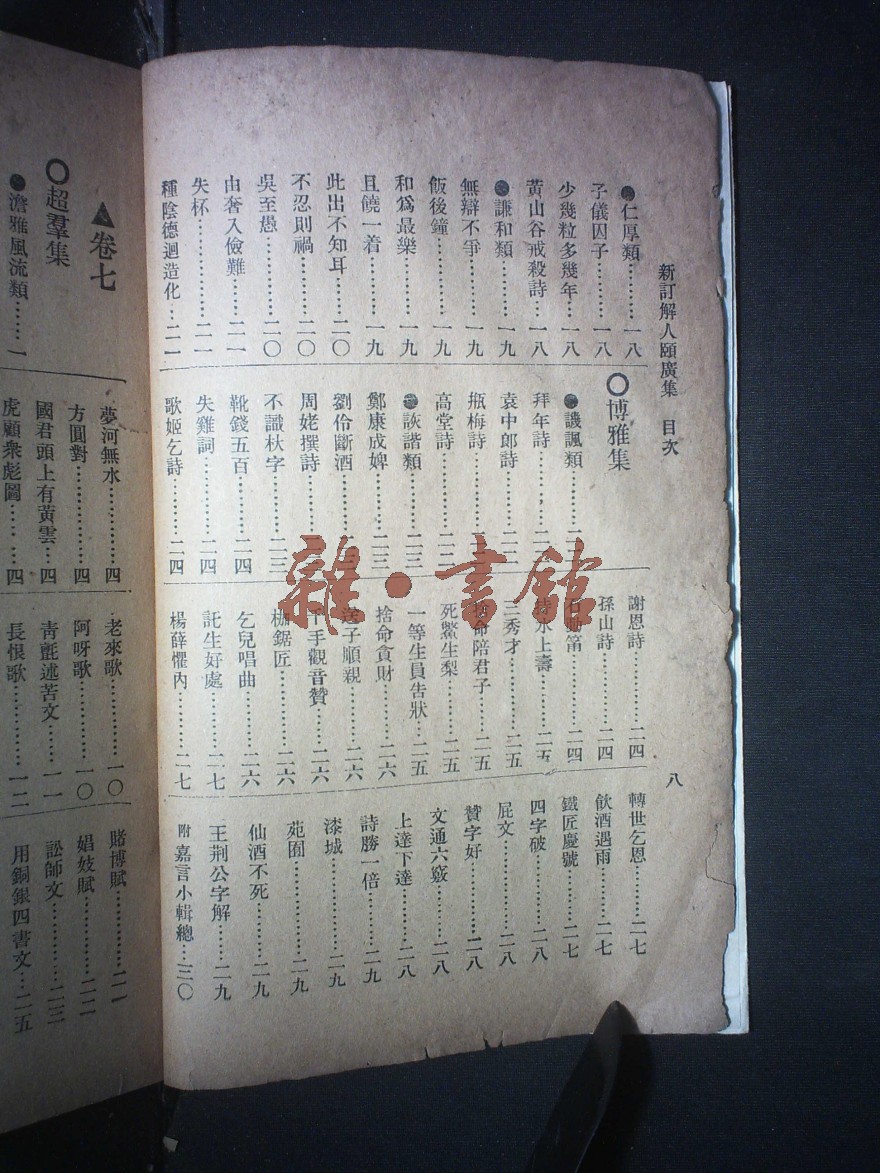 新訂解人頤廣集 目次
八
●仁厚類………一八
子儀囚子………一八
少幾粒多幾年…一八
黃山谷戒殺詩…一八
●謙和類………一九
無辯不爭………一九
飯後鐘…………一九
和爲最樂………一九
且饒一着………一九
此出不知耳……二〇
不忍則禍………二〇
吳至愚…………二〇
由奢入儉難……二一
失杯……………二一
種陰德迴造化…二一
○博雅集
●譏諷類
拜年詩
袁中郎詩
瓶梅詩
高堂詩…………二二
●詼諧類………二三
鄭康成婢………二三
劉伶斷酒
周姥撰詩
不識杕字………二三
靴錢五百………二四
失雞詞…………二四
歌姬乞詩………二四
謝恩詩…………二四
孫山詩…………二四
笛…………二四
水上壽………二五
三秀才…………二五
命陪君子……二五
死鱉生梨………二五
一等生員告狀…二五
捨命貪財………二六
子順親………二六
千手觀音贊……二六
枷鋸匠…………二六
乞兒唱曲………二六
託生好處………二七
楊薛懼內………二七
轉世乞恩………二七
飲酒遇雨………二七
鐵匠慶號………二七
四字破…………二八
屁文……………二八
贊字好…………二八
文通六竅………二八
上達下達………二八
詩勝一倍………二九
漆城……………二九
苑囿……………二九
仙酒不死………二九
王荊公字解……二九
附嘉言小輯總…三〇
▲卷七
○超羣集
●澹雅風流類……一
夢河無水………四
方圓對…………四
國君頭上有黃雲…四
虎顧衆彪圖……四
老來歌…………一〇
阿呀歌…………一〇
靑氈述苦文……一一
長恨歌…………一二
賭博賦…………二一
娼妓賦…………二二
訟師文…………二三
用銅銀四書文…二五
雜·書館